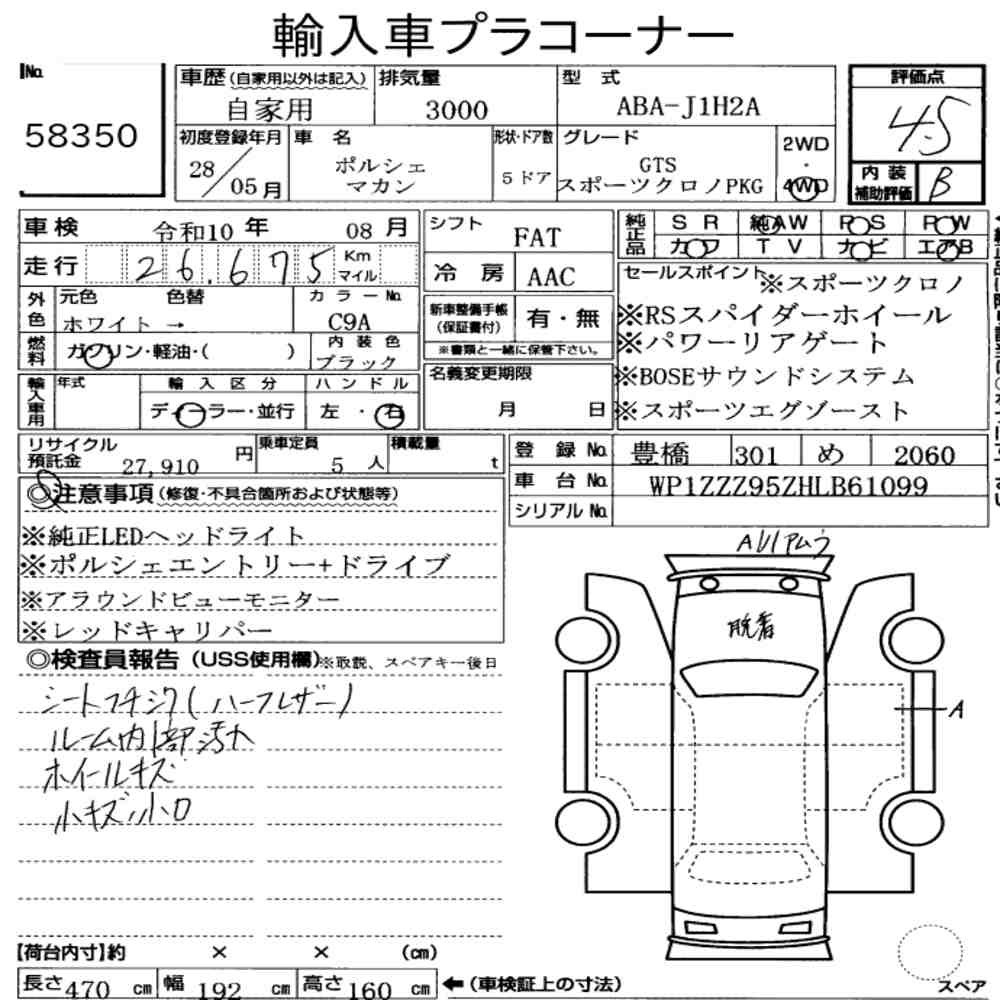 輸入車プラコーナー
No. 58350
車歴(自家用以外は記入) 自家用
排気量 3000
型式 ABA-J1H2A
評価点 4.5
内装補助評価 B
初度登録年月 28/05月
車名 ポルシェ マカン
形状・ドア数 5ドア
グレード GTS スポーツクロノPKG
2WD・4WD
車検 令和10年 08月
シフト FAT
純正品 SR 純AW PS PW
カワ TV ナビ エアB
走行 26,675 Km マイル
冷房 AAC
外色 元色 色替 カラーNo.
ホワイト → C9A
新車整備手帳(保証書付) 有・無
※書類と一緒に保管下さい。
燃料 ガソリン・軽油・( )
内装色 ブラック
セールスポイント ※スポーツクロノ
※RSスパイダーホイール
※パワーリアゲート
※BOSEサウンドシステム
※スポーツエグゾースト
輸入車用 年式 輸入区分 ハンドル
ディーラー・並行 左・右
名義変更期限 月 日
リサイクル預託金 27,910円
乗車定員 5人
積載量 t
登録No. 豊橋 301 め 2060
車台No. WP1ZZZ95ZHLB61099
シリアルNo.
◎注意事項(修復・不具合箇所および状態等)
※純正LEDヘッドライト
※ポルシェエントリー+ドライブ
※アラウンドビューモニター
※レッドキャリパー
◎検査員報告(USS使用欄)※取説、スペアキー後日
シートフチシワ(ハーフレザー)
ルーム内部汚れ
ホイールキズ
小キズ小凹
脱着
A
【荷台内寸】約 × × (cm)
長さ470cm 幅192cm 高さ160cm ←(車検証上の寸法)
スペア